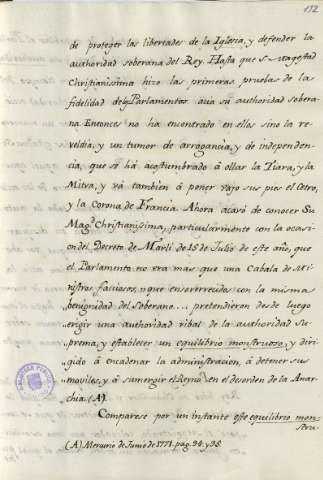 132
de proteger las libertades de la Iglesia, y defender la
authoridad soberana del Rey. Hasta que S. Magestad
Christianissima hizo las primeras pruebas de la
fidelidad de los Parlamentos a su authoridad sobera-
na Entonces no ha encontrado en ellos sino la re-
veldia, y un tumor de arrogancia, y de independen-
cia, que se há acostumbrado á ollar la Tiara, y la
Mitra, y vá tambien á poner vajo sus pies el Cetro,
y la Corona de Francia. Ahora acavó de conocer Su
Mag.d Christianissima, particularmente con la ocasi-
on del Decreto de Marli de 15 de Julio de este año, que
el Parlamento no era mas que una Cabala de Mi-
nistros facciosos, "que enservercidos con la misma
benignidad del Soberano... pretendieron desde luego
erigir una authoridad ribal de la authoridad Su-
prema, y establecer un equilibrio monstruoso, y diri-
gido á encadenar la administracion, á detener sus
moviles, y á sumergir el Reyno en el desorden de la Anar-
chia. (A)
Comparese por un instante este equilibrio mon-
stru-
(A) Mercurio de Junio de 1771. pag. 94. y 95.